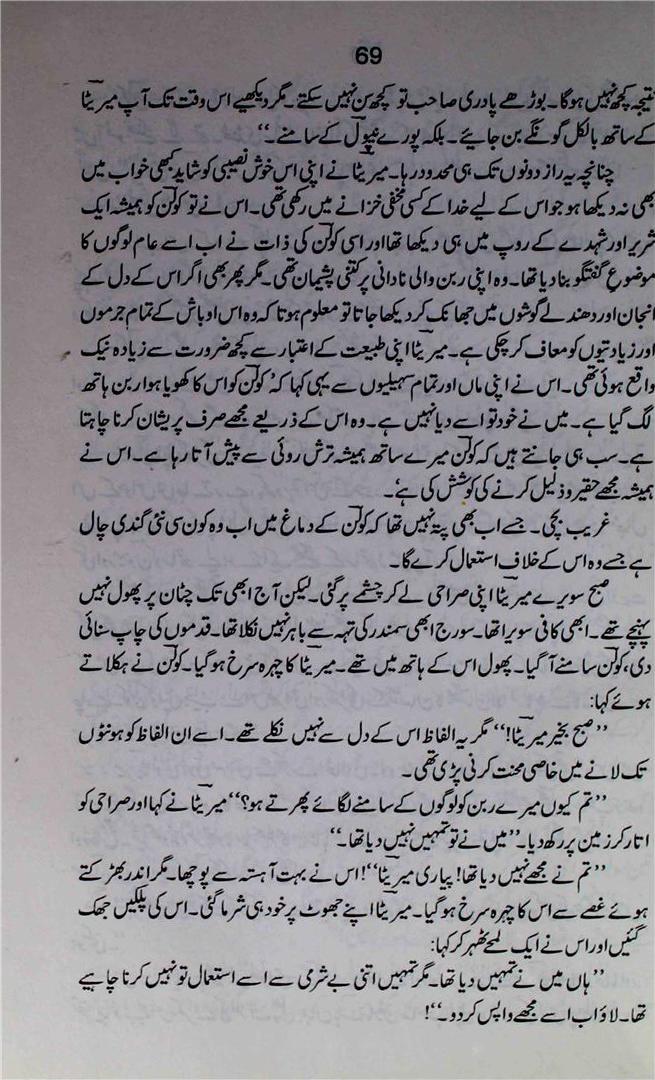 69
نتیجہ کچھ نہیں ہوگا۔ بوڑھے پادری صاحب تو کچھ سن نہیں سکتے۔ مگر دیکھیے اس وقت تک آپ میریٹا
کے ساتھ بالکل گونگے بن جائیے۔ بلکہ پورے نیپول کے سامنے۔‘‘
چنانچہ یہ راز دونوں تک ہی محدود رہا۔ میریٹا نے اپنی اس خوش نصیبی کو شاید کبھی خواب میں
بھی نہ دیکھا ہو جو اس کے لیے خدا کے کسی مخفی خزانے میں رکھی تھی۔ اس نے تو کولن کو ہمیشہ ایک
شریر اور شہدے کے روپ میں ہی دیکھا تھا اور اسی کولن کی ذات نے اب اسے عام لوگوں کا
موضوع گفتگو بنا دیا تھا۔ وہ اپنی ربن والی نادانی پر کتنی پشیمان تھی۔ مگر پھر بھی اگر اس کے دل کے
انجان اور دھندلے گوشوں میں جھانک کر دیکھا جاتا تو معلوم ہوتا کہ وہ اس اوباش کے تمام جرموں
اور زیادتیوں کو معاف کر چکی ہے۔ میریٹا اپنی طبیعت کے اعتبار سے کچھ ضرورت سے زیادہ نیک
واقع ہوئی تھی۔ اس نے اپنی ماں اور تمام سہیلیوں سے یہی کہا کہ ’کولن کو اس کا کھویا ہوا ربن ہاتھ
لگ گیا ہے۔ میں نے خود تو اسے دیا نہیں ہے۔ وہ اس کے ذریعے مجھے صرف پریشان کرنا چاہتا
ہے۔ سب ہی جانتے ہیں کہ کولن میرے ساتھ ہمیشہ ترش روئی سے پیش آتا رہا ہے۔ اس نے
ہمیشہ مجھے حقیر و ذلیل کرنے کی کوشش کی ہے‘۔
غریب بچی۔ جسے اب بھی پتہ نہیں تھا کہ کولن کے دماغ میں اب وہ کون سی نئی گندی چال
ہے جسے وہ اس کے خلاف استعمال کرے گا۔
صبح سویرے میریٹا اپنی صراحی لے کر چشمے پر گئی۔ لیکن آج ابھی تک چٹان پر پھول نہیں
پہنچے تھے۔ ابھی کافی سویرا تھا۔ سورج ابھی سمندر کی تہہ سے باہر نہیں نکلا تھا۔ قدموں کی چاپ سنائی
دی، کولن سامنے آ گیا۔ پھول اس کے ہاتھ میں تھے۔ میریٹا کا چہرہ سرخ ہو گیا۔ کولن نے ہکلاتے
ہوئے کہا:
’’صبح بخیر میریٹا!‘‘ مگر یہ الفاظ اس کے دل سے نہیں نکلے تھے۔ اسے ان الفاظ کو ہونٹوں
تک لانے میں خاصی محنت کرنی پڑی تھی۔
’’تم کیوں میرے ربن کو لوگوں کے سامنے لگائے پھرتے ہو؟‘‘ میریٹا نے کہا اور صراحی کو
اتار کر زمین پر رکھ دیا۔ ’’میں نے تو تمہیں نہیں دیا تھا۔‘‘
’’تم نے مجھے نہیں دیا تھا! پیاری میریٹا‘‘! اس نے بہت آہستہ سے پوچھا۔ مگر اندر بھڑکتے
ہوئے غصے سے اس کا چہرہ سرخ ہو گیا۔ میریٹا اپنے جھوٹ پر خود ہی شرما گئی۔ اس کی پلکیں جھک
گئیں اور اس نے ایک لمحے ٹھہر کر کہا:
’’ہاں میں نے تمہیں دیا تھا۔ مگر تمہیں اتنی بے شرمی سے اسے استعمال تو نہیں کرنا چاہیے
تھا۔ لاؤ اب اسے مجھے واپس کر دو۔‘‘!